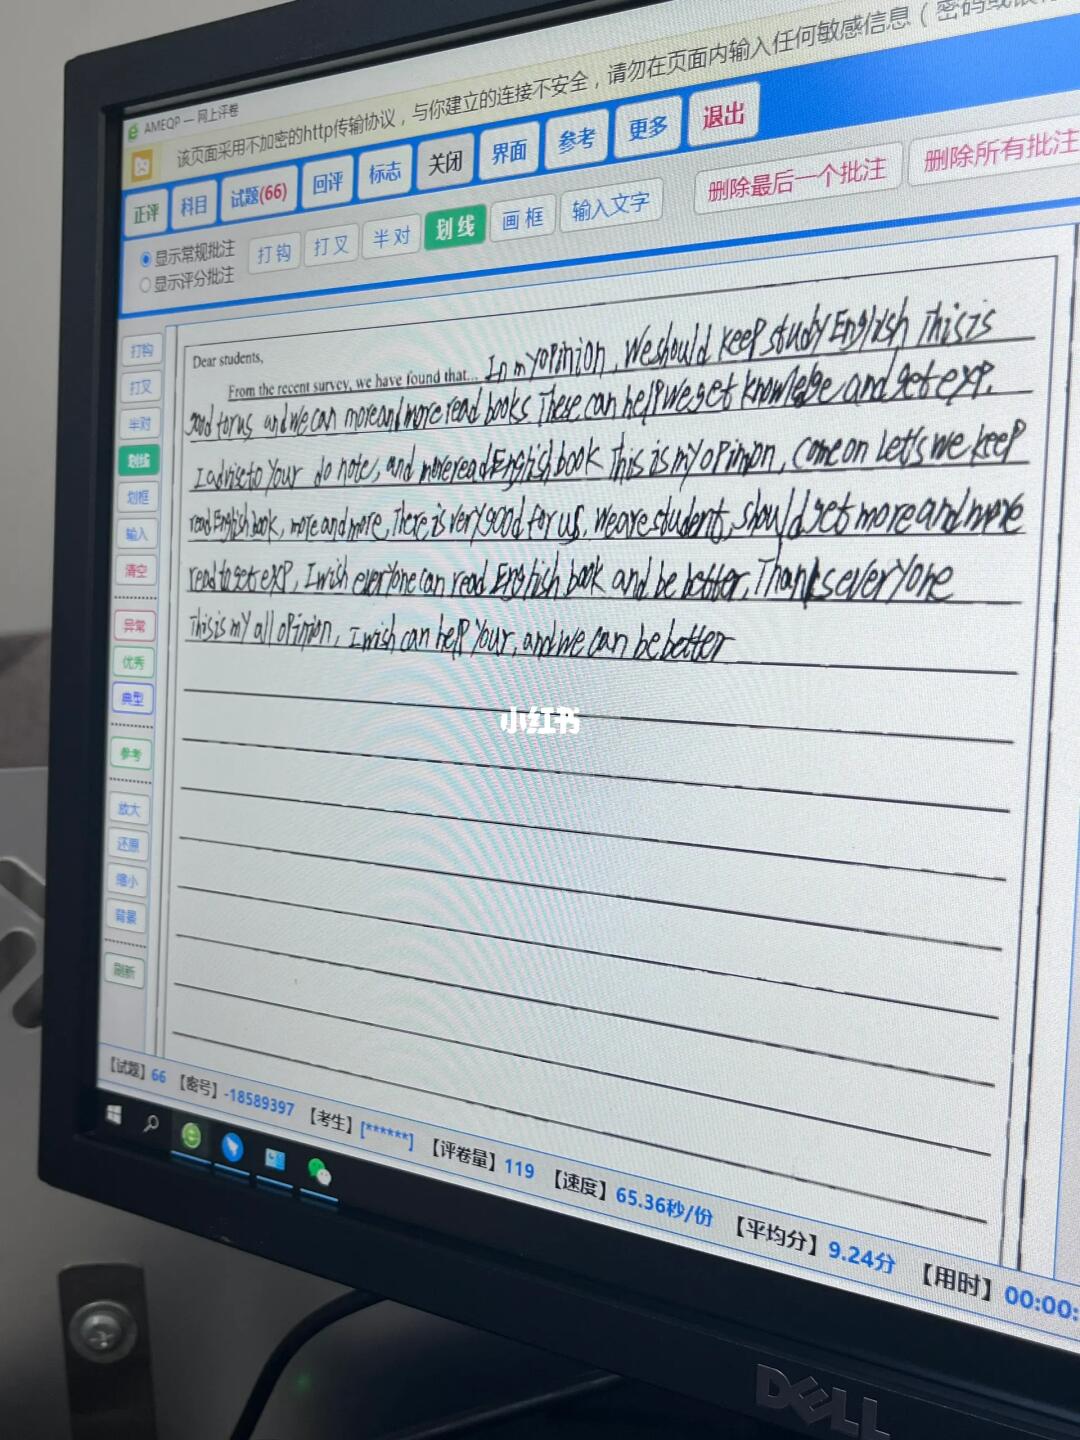 AMEQP — 网上评卷
该页面采用不加密的http传输协议，与你建立的连接不安全，请勿在页面内输入任何敏感信息（密码或
正评 科目 试题(66) 回评 标志 关闭 界面 参考 更多 退出
显示常规批注
显示评分批注
打钩 打叉 半对 划线 画框 输入文字 删除最后一个批注 删除所有批注
打钩
打叉
半对
划线
划框
输入
清空
异常
优秀
典型
参考
放大
还原
缩小
背景
刷新
Dear students,
From the recent survey, we have found that... In my opinion, We should keep study English This is
good for us and we can more and more read books. These can help we get knowlege and get exp.
I advise to your do note, and more read English book This is my opinion, come on Let's we keep
read English book, more and more, There is very good for us. we are student, should get more and more
read to get exp, I wish everyone can read English book and be better, Thanks everyone
This is my all opinion, I wish can help your, and we can be better
小红书
【试题】66 【密号】-18589397 【考生】[******] 【评卷量】119 【速度】65.36秒/份 【平均分】9.24分 【用时】00:00:
DELL